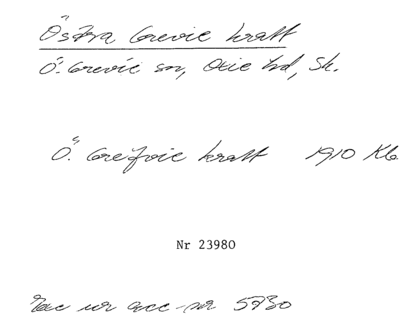 Östra Grevie kraft
Ö. Grevie sn, Oxie hd, Sk.
Ö. Greifvie kraft 1910 Kb
Nr 23980
Exc ur acc-nr 5730